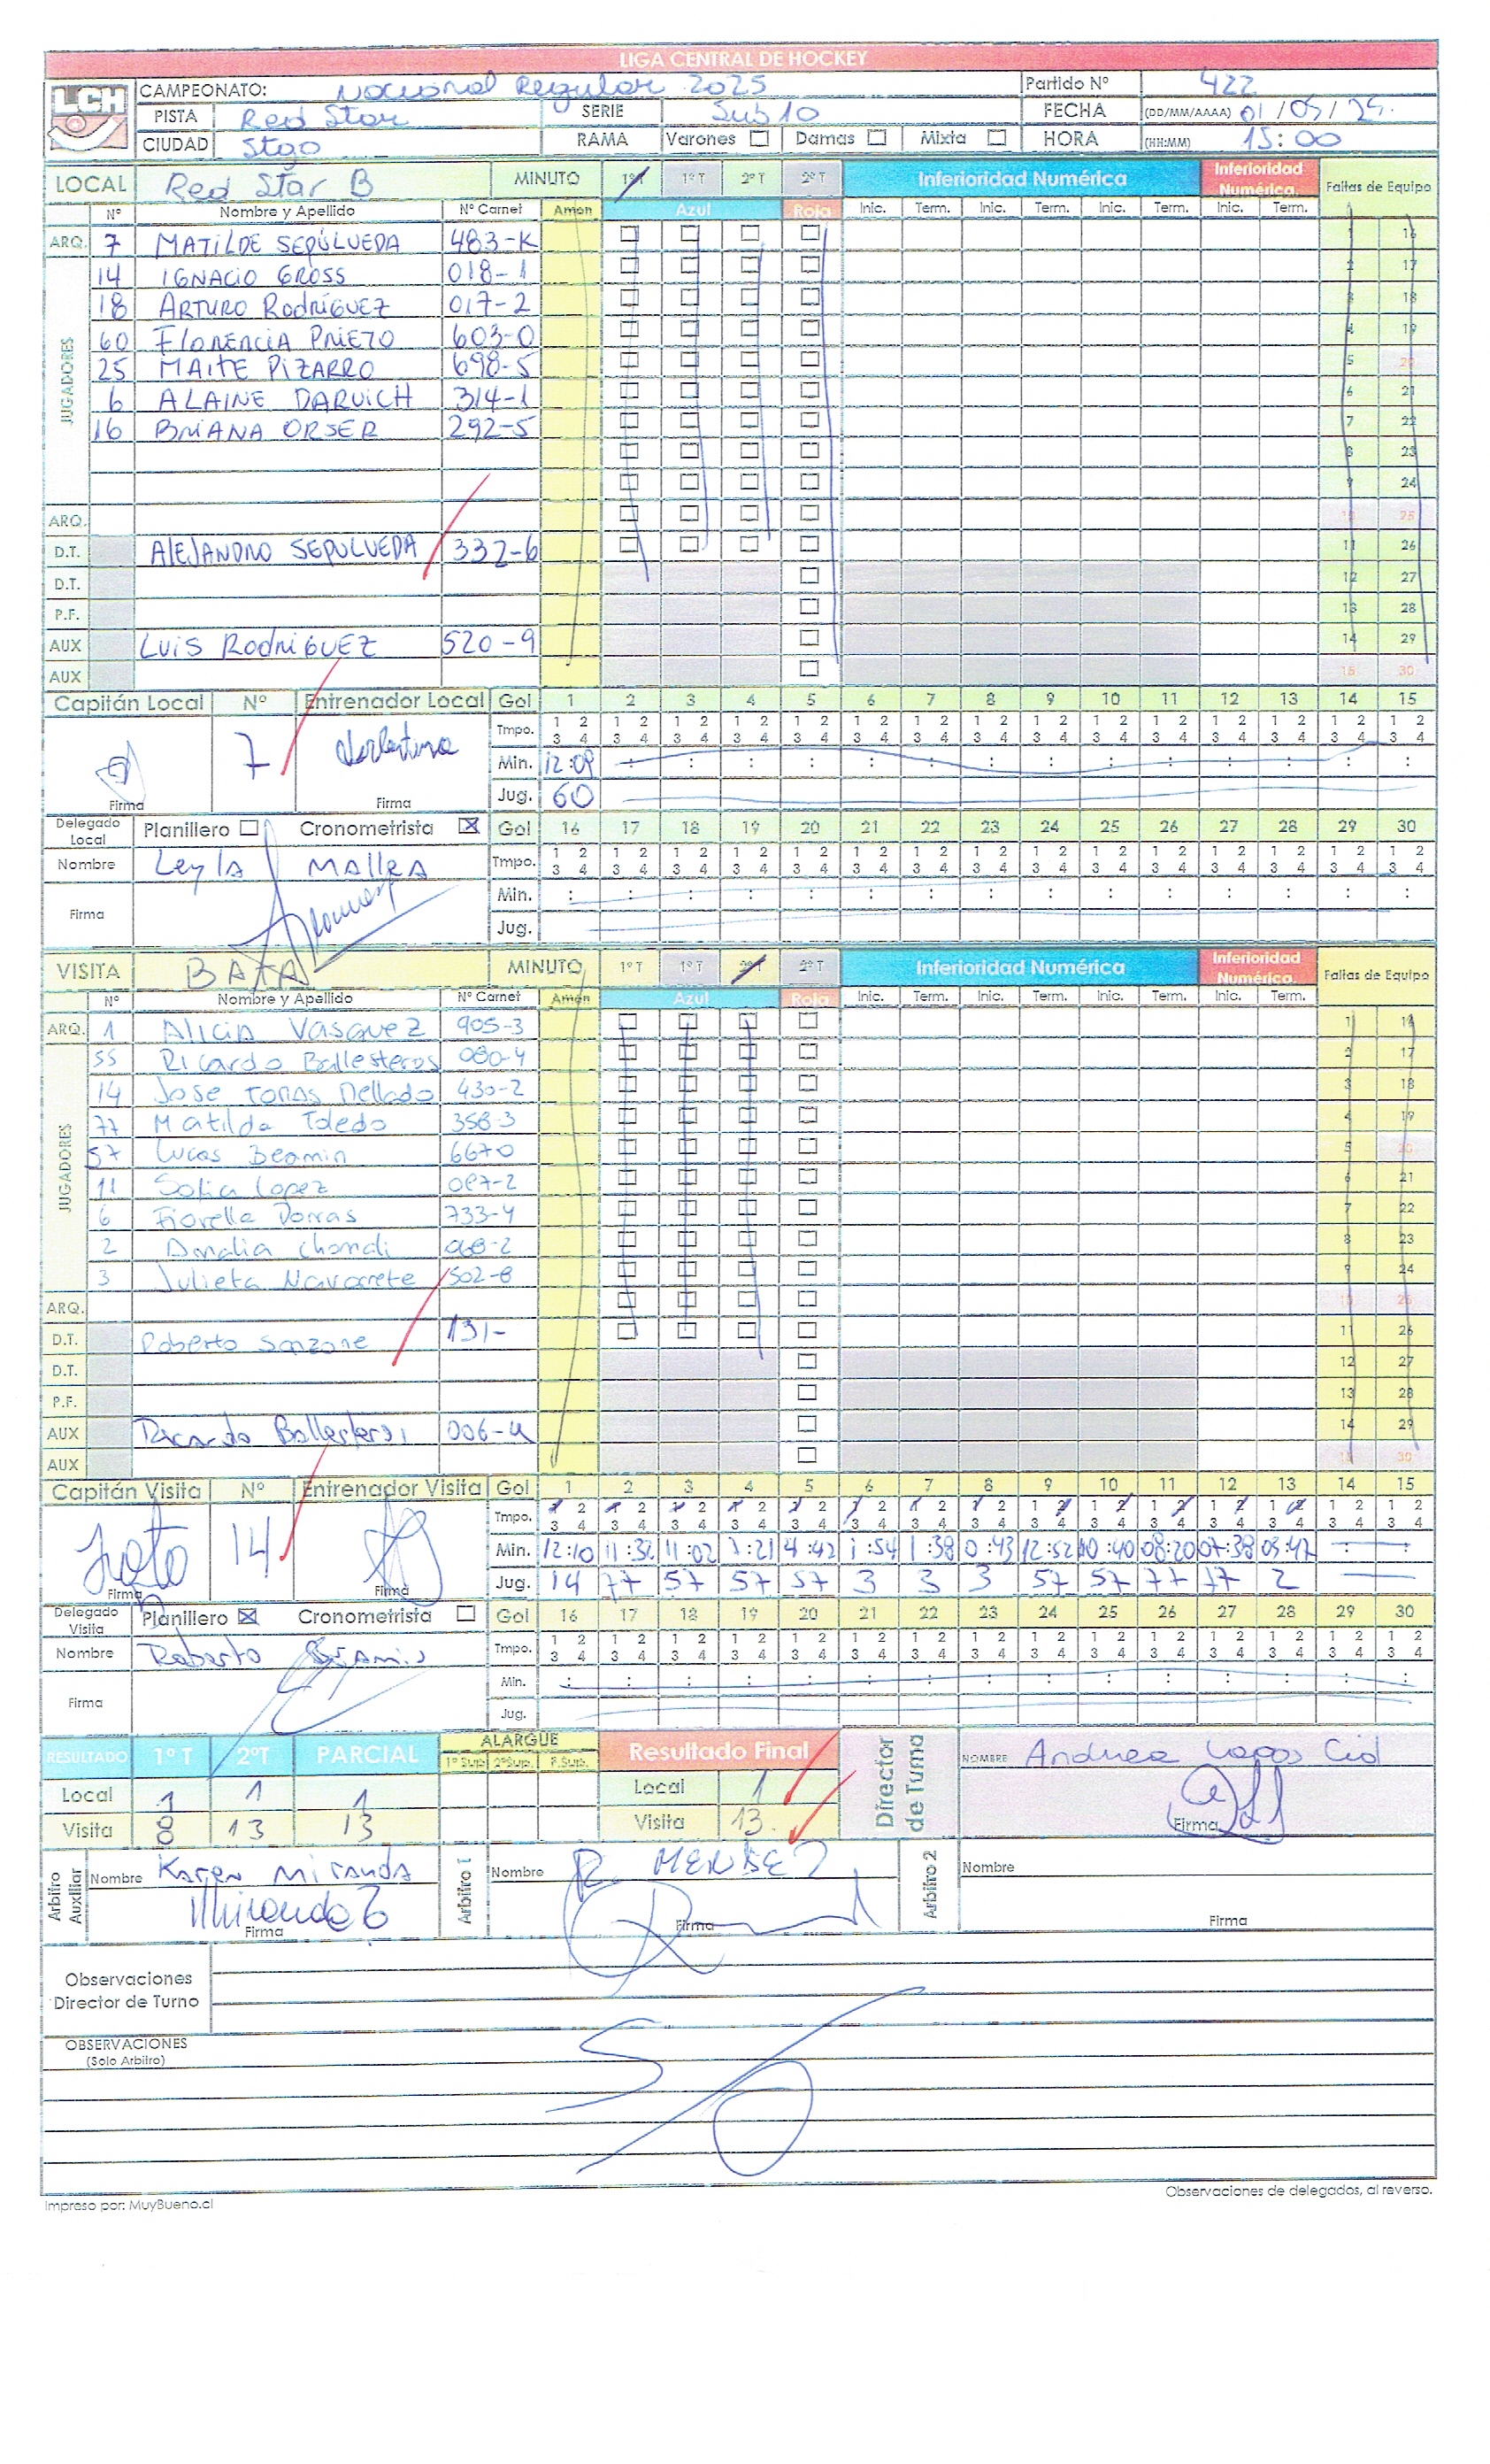 LIGA CENTRAL DE HOCKEY
LCH
CAMPEONATO: Nacional Regular 2025 Partido Nº 422
PISTA Red Star SERIE Sub 10 FECHA (DD/MM/AAAA) 01/05/25
CIUDAD Stgo RAMA Varones Damas Mixta HORA (HH:MM) 15:00
LOCAL Red Star B MINUTO 1ºT 1ºT 2ºT 2ºT Inferioridad Numérica Inferioridad Numérica Faltas de Equipo
Nº Nombre y Apellido Nº Carnet Amon Azul Roja Inic. Term. Inic. Term. Inic. Term. Inic. Term.
ARQ. 7 MATILDE SEPÚLVEDA 483-K 1 16
JUGADORES
14 IGNACIO GROSS 018-1 2 17
18 ARTURO RODRÍGUEZ 017-2 3 18
60 FLORENCIA PRIETO 603-0 4 19
25 MAITE PIZARRO 698-5 5 20
6 ALAINE DARUICH 314-1 6 21
16 BRIANA ORSER 292-5 7 22
8 23
9 24
ARQ. 10 25
D.T. ALEJANDRO SEPULVEDA 332-6 11 26
D.T. 12 27
P.F. 13 28
AUX LUIS RODRÍGUEZ 520-9 14 29
AUX 15 30
Capitán Local Nº Entrenador Local Gol 1 2 3 4 5 6 7 8 9 10 11 12 13 14 15
Tmpo. 1 2 3 4 1 2 3 4 1 2 3 4 1 2 3 4 1 2 3 4 1 2 3 4 1 2 3 4 1 2 3 4 1 2 3 4 1 2 3 4 1 2 3 4 1 2 3 4 1 2 3 4 1 2 3 4 1 2 3 4
7 Min. 12:09
Firma Firma Jug. 60
Delegado Local Planillero Cronometrista Gol 16 17 18 19 20 21 22 23 24 25 26 27 28 29 30
Nombre Leyla MALLEA Tmpo. 1 2 3 4 1 2 3 4 1 2 3 4 1 2 3 4 1 2 3 4 1 2 3 4 1 2 3 4 1 2 3 4 1 2 3 4 1 2 3 4 1 2 3 4 1 2 3 4 1 2 3 4 1 2 3 4 1 2 3 4
Min.
Firma Jug.
VISITA BATA MINUTO 1ºT 1ºT 2ºT 2ºT Inferioridad Numérica Inferioridad Numérica Faltas de Equipo
Nº Nombre y Apellido Nº Carnet Amon Azul Roja Inic. Term. Inic. Term. Inic. Term. Inic. Term.
ARQ. 1 Alicia Vasquez 905-3 1 16
JUGADORES
55 Ricardo Ballesteros 080-4 2 17
14 Jose Tomas Mellado 430-2 3 18
77 Matilda Toledo 358-3 4 19
57 Lucas Beamin 667-0 5 20
11 Sofia Lopez 087-2 6 21
6 Fiorella Porras 733-4 7 22
2 8 23
3 Julieta Navarrete 502-8 9 24
ARQ. 10 25
D.T. Roberto Sanzone 131- 11 26
D.T. 12 27
P.F. 13 28
AUX Ricardo Ballesteros 006-4 14 29
AUX 15 30
Capitán Visita Nº Entrenador Visita Gol 1 2 3 4 5 6 7 8 9 10 11 12 13 14 15
Tmpo. 1 2 3 4 1 2 3 4 1 2 3 4 1 2 3 4 1 2 3 4 1 2 3 4 1 2 3 4 1 2 3 4 1 2 3 4 1 2 3 4 1 2 3 4 1 2 3 4 1 2 3 4 1 2 3 4 1 2 3 4
14 Min. 12:10 11:32 11:02 7:21 4:42 1:54 1:38 0:43 12:52 10:40 08:20 07:38 03:47
Firma Firma Jug. 14 77 57 57 57 3 3 3 57 57 77 77 2
Delegado Visita Planillero Cronometrista Gol 16 17 18 19 20 21 22 23 24 25 26 27 28 29 30
Nombre Roberto Tmpo. 1 2 3 4 1 2 3 4 1 2 3 4 1 2 3 4 1 2 3 4 1 2 3 4 1 2 3 4 1 2 3 4 1 2 3 4 1 2 3 4 1 2 3 4 1 2 3 4 1 2 3 4 1 2 3 4 1 2 3 4
Min.
Firma Jug.
RESULTADO 1ºT 2ºT PARCIAL ALARGUE 1ºSup. 2ºSup. P.Sup. Resultado Final Director de Turno NOMBRE Andrea Lagos Cid
Local 1 1 1 Local 1
Visita 8 13 13 Visita 13 Firma
Arbitro Auxiliar Nombre Karen Miranda Arbitro 1 Nombre R. MENDEZ Arbitro 2 Nombre
Miranda
Firma Firma Firma
Observaciones
Director de Turno
OBSERVACIONES
(Solo Arbitro)
S/O
Impreso por: MuyBueno.cl Observaciones de delegados, al reverso.